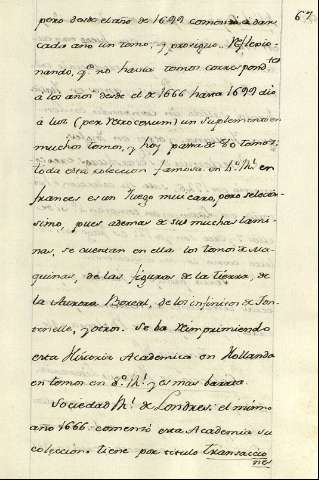 67
pero desde el año de 1692 comenzó a dar
cada año un tomo, y prosigue. Reflexio-
nando, q.e no havia tomos correspond.tes
a los años desde el de 1666 hasta 1692 dió
a luz (per retrocesum) un suplemento en
muchos tomos, y hoy passa de 80 tomos;
toda esta coleccion famosa en 4.º R.l en
frances es un Juego mui caro, pero selectis-
simo, pues ademas de sus muchas lami-
nas, se cuentan en ella los tomos de Ma-
quinas, de las figuras de la tierra, de
la Aurora Boreal, de los infinitos de Fon-
tenelle, y otros. Se ba reimprimiendo
esta Historia Academica en Hollanda
en tomos en 8.º R.l y es mas barata.
Sociedad R.l de Londres: el mismo
año 1666 comenzó esta Academia su
coleccion. tiene por titulo transaccio
nes